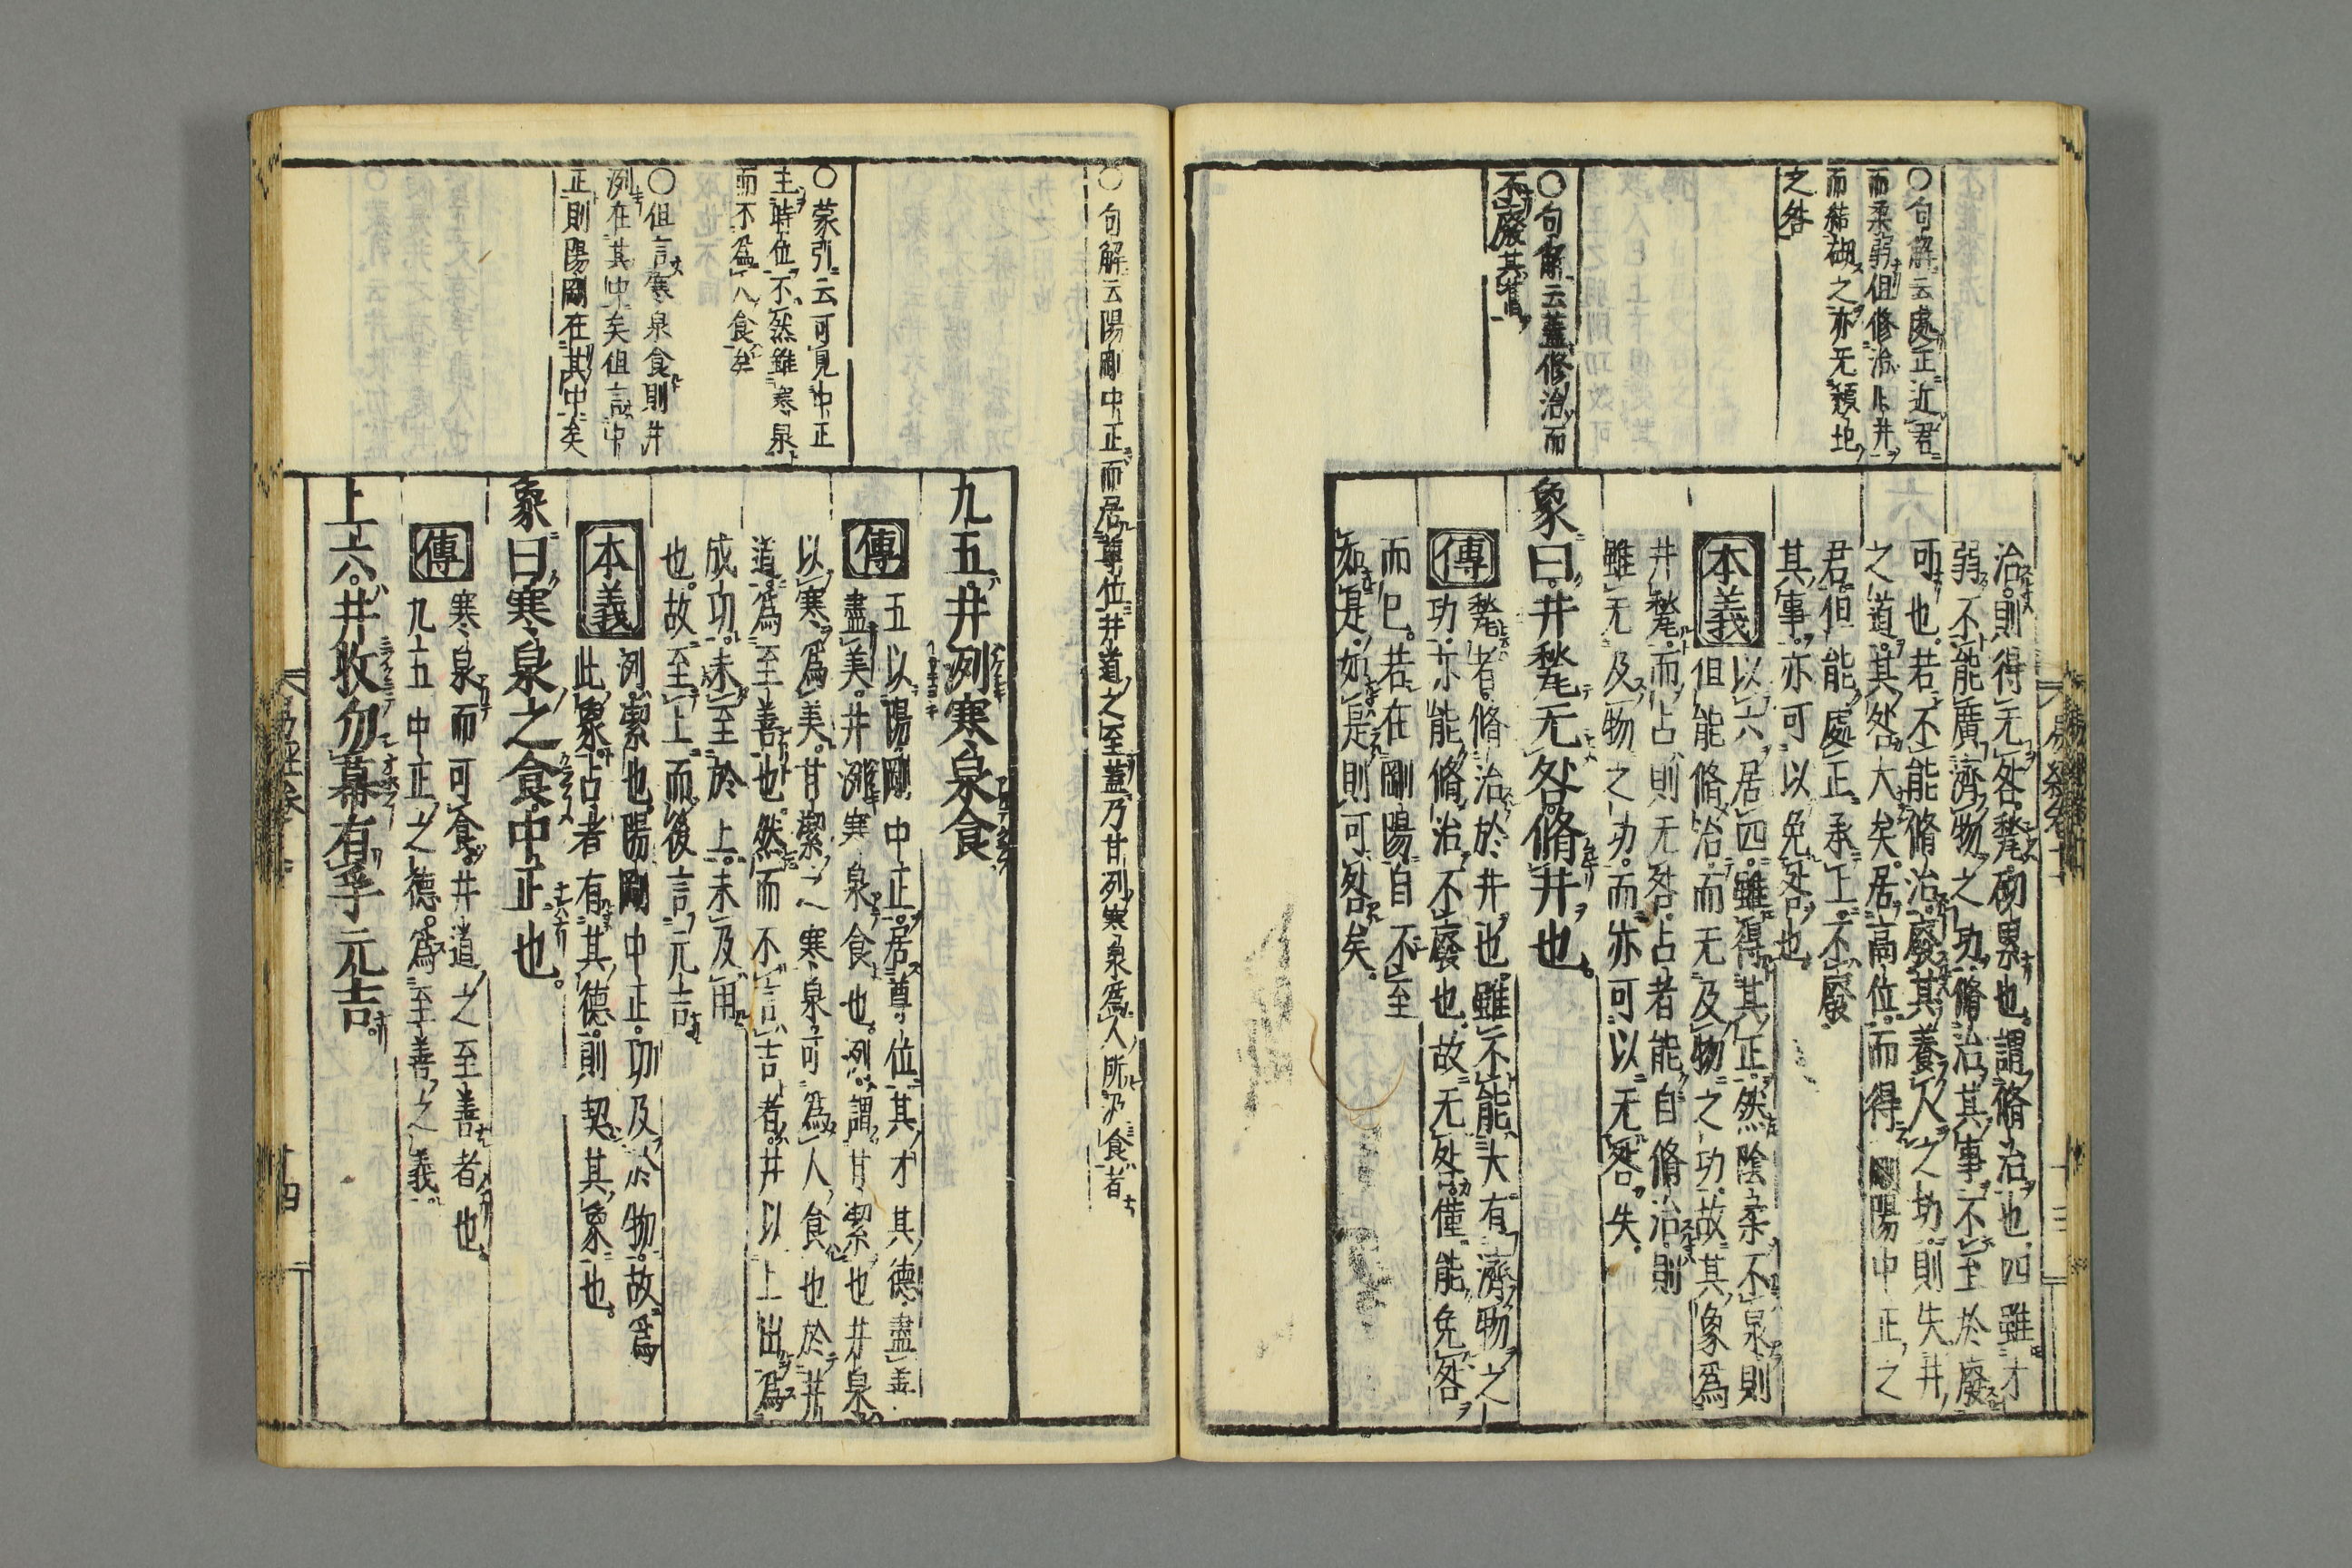 〇句解云處正近君
而柔弱但修治其井
而結砌之亦无頽圯
之咎
〇句解云蓋修治而
不廢其舊
治則得无咎甃砌累也謂脩治也四雖才
弱不能廣濟物之功脩治其事不至於廢
可也若不能脩治廢其養人之功則失井
之道其咎大矣居高位而得剛陽中正之
君但能處正承上不廢
其事亦可以免咎也
本義以六居四雖得其正然陰柔不泉則
但能脩治而无及物之功故其象爲
井甃而占則无咎占者能自脩治則
雖无及物之功而亦可以无咎失
象曰井甃无咎脩井也
傳甃者脩治於井也雖不能大有濟物之
功亦能脩治不廢也故无咎僅能免咎
而已若在剛陽自不至
如是如是則可咎矣
〇句解云陽剛中正而居尊位井道之至蓋乃甘冽寒泉爲人所汲食者
〇蒙引云可見中正
主時位不然雖寒泉
而不爲人食矣
〇但言寒泉食則井
洌在其中矣但言中
正則陽剛在其中矣
九五井洌寒泉食
傳五以陽剛中正居尊位其才其德盡善
盡美井冽寒泉食也冽謂甘潔也井泉
以寒爲美甘潔之寒泉可爲人食也於井
道爲至善也然而不言吉者井以上出爲
成功未至於上未及用
也故至上而後言元吉
本義洌潔也陽剛中正功及於物故爲
此象占者有其德則契其象也
象曰寒泉之食中正也
傳寒泉而可食井道之至善者也
九五中正之德爲至善之義
上六井收勿幕有孚元吉
十四